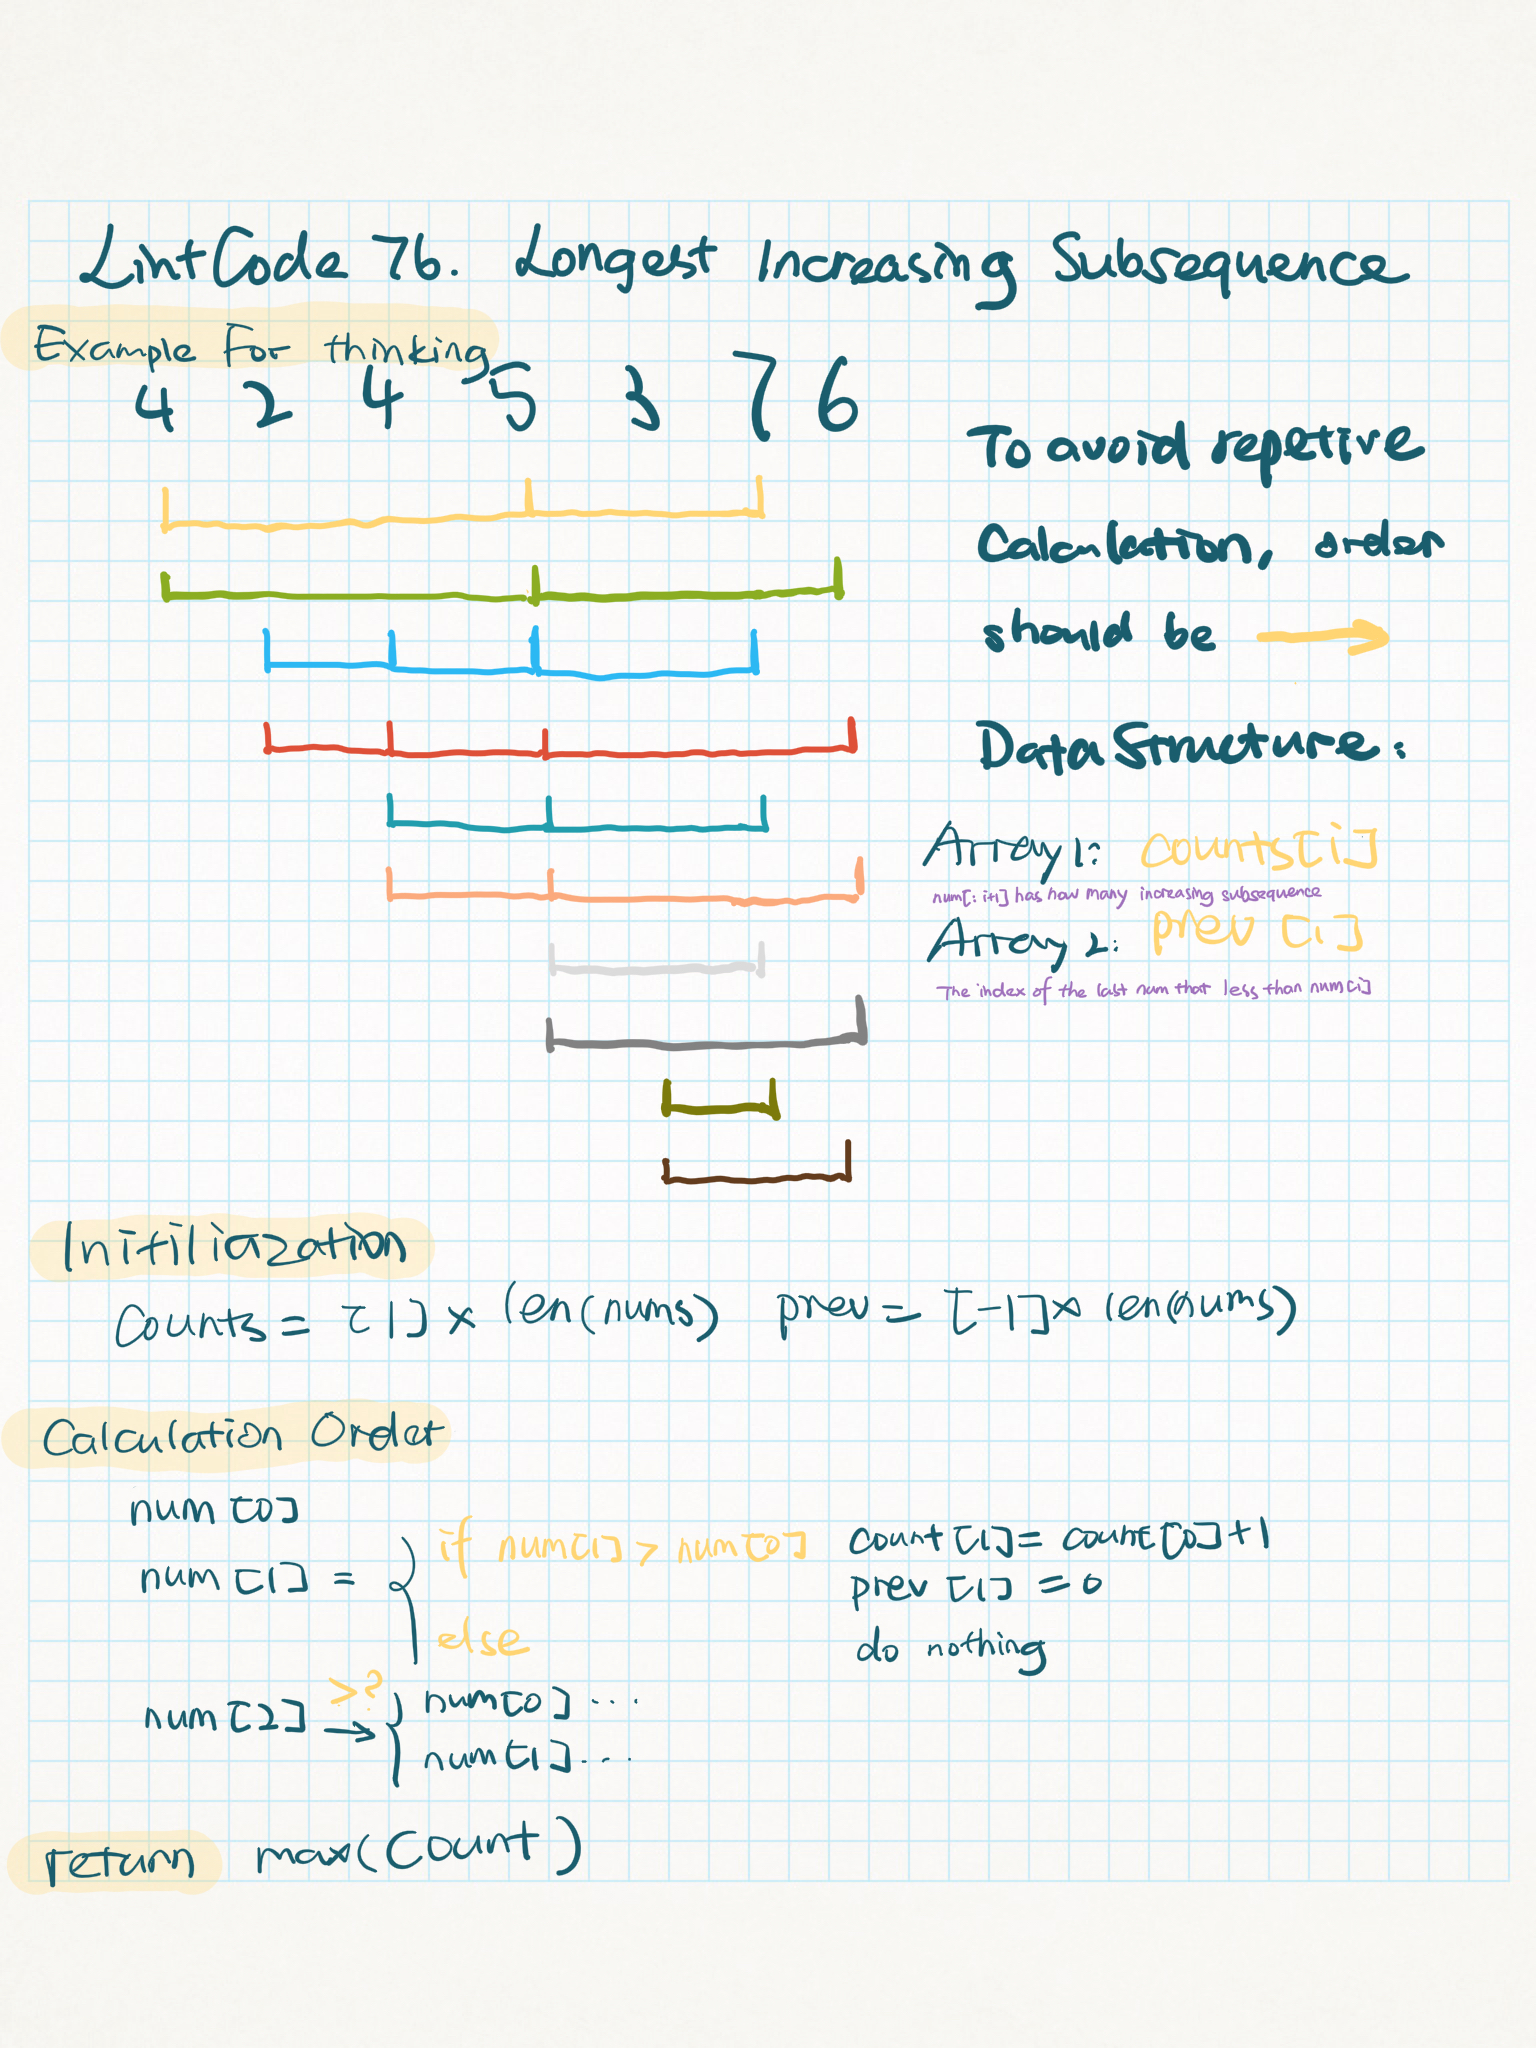 LintCode 76. Longest Increasing Subsequence
Example For thinking
4 2 4 5 3 7 6
To avoid repetive
Calculation, order
should be →
Data Structure:
Array 1: counts[i]
num[: i+1] has how many increasing subsequence
Array 2: prev [i]
The index of the last num that less than num[i]
Initiliazation
Counts = [1] × len(nums) prev = [-1] × len(nums)
Calculation Order
num [0]
num [1] = { if num[1] > num[0] count [1] = count[0] + 1
prev [1] = 0
else do nothing
>?
num [2] → { num[0] ...
num [1] ...
return max(Count)